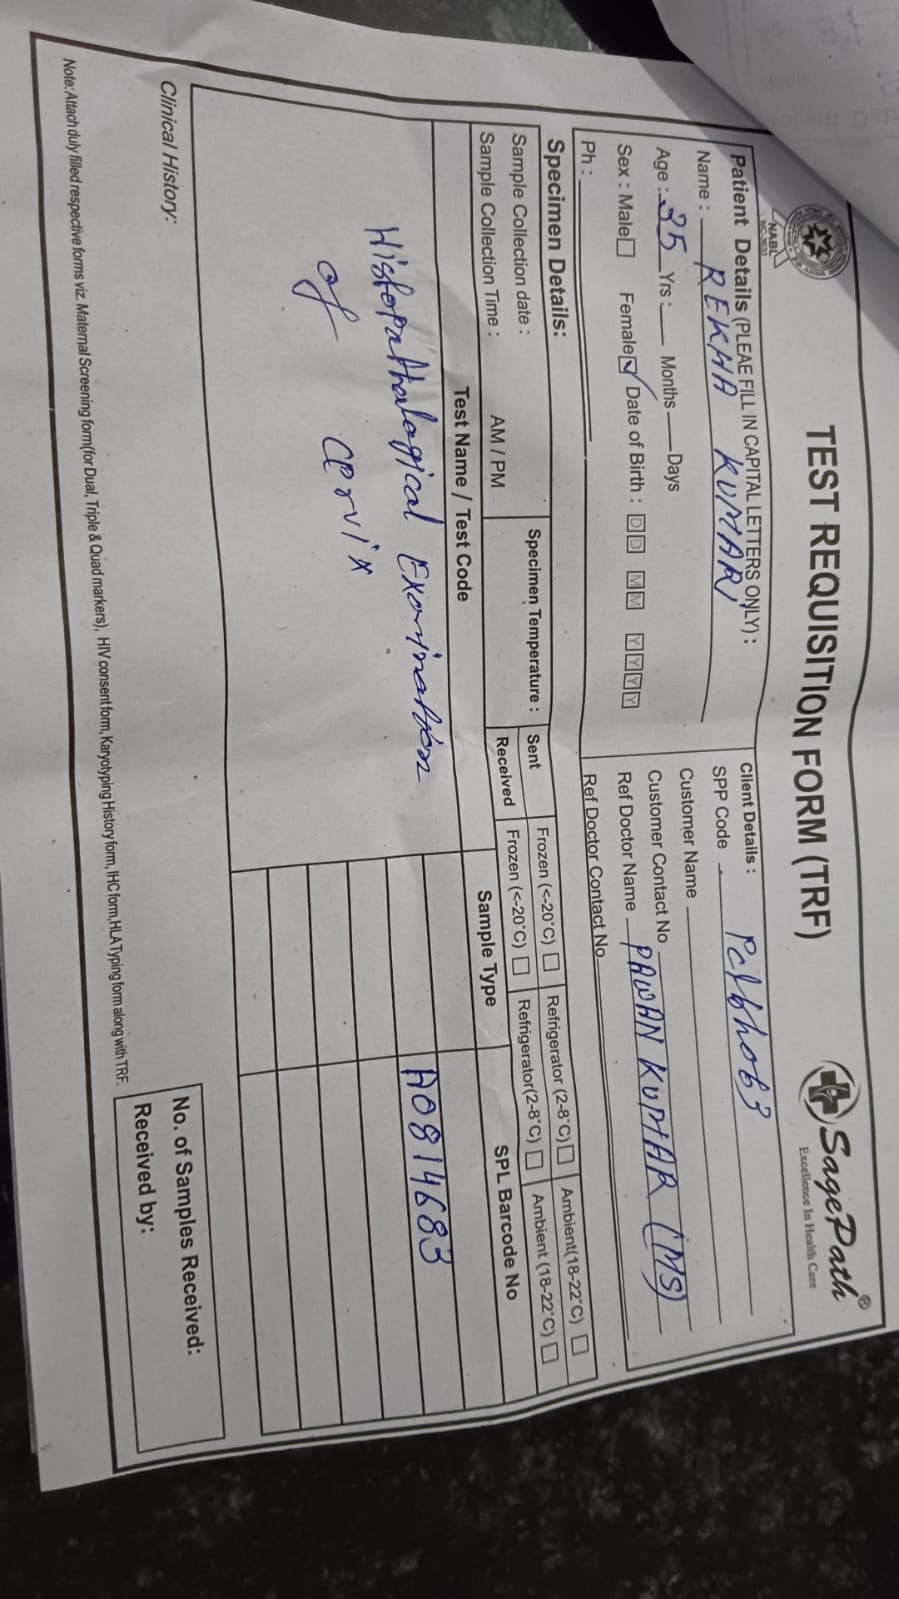 TEST REQUISITION FORM (TRF)
SagePath®
Excellence In Health Care
NABL
Patient Details (PLEAE FILL IN CAPITAL LETTERS ONLY) :
Name : REKHA KUMARI
Age : 35 Yrs : Months Days
Sex : Male Female Date of Birth : DD MM YYYY
Ph :
Client Details :
SPP Code
Customer Name
Customer Contact No
Ref Doctor Name PAWAN KUMAR (MS)
Ref Doctor Contact No
Specimen Details:
Sample Collection date :
Sample Collection Time : AM / PM
Specimen Temperature :
Sent Frozen (<-20°C) Refrigerator (2-8°C) Ambient(18-22°C)
Received Frozen (<-20°C) Refrigerator(2-8°C) Ambient (18-22°C)
Test Name / Test Code Sample Type SPL Barcode No
Histopathalogical Examination
of Cervix
A0814683
Clinical History:
No. of Samples Received:
Received by:
Note: Attach duly filled respective forms viz. Maternal Screening form(for Dual, Triple & Quad markers), HIV consent form, Karyotyping History form, IHC form,HLA Typing form along with TRF.